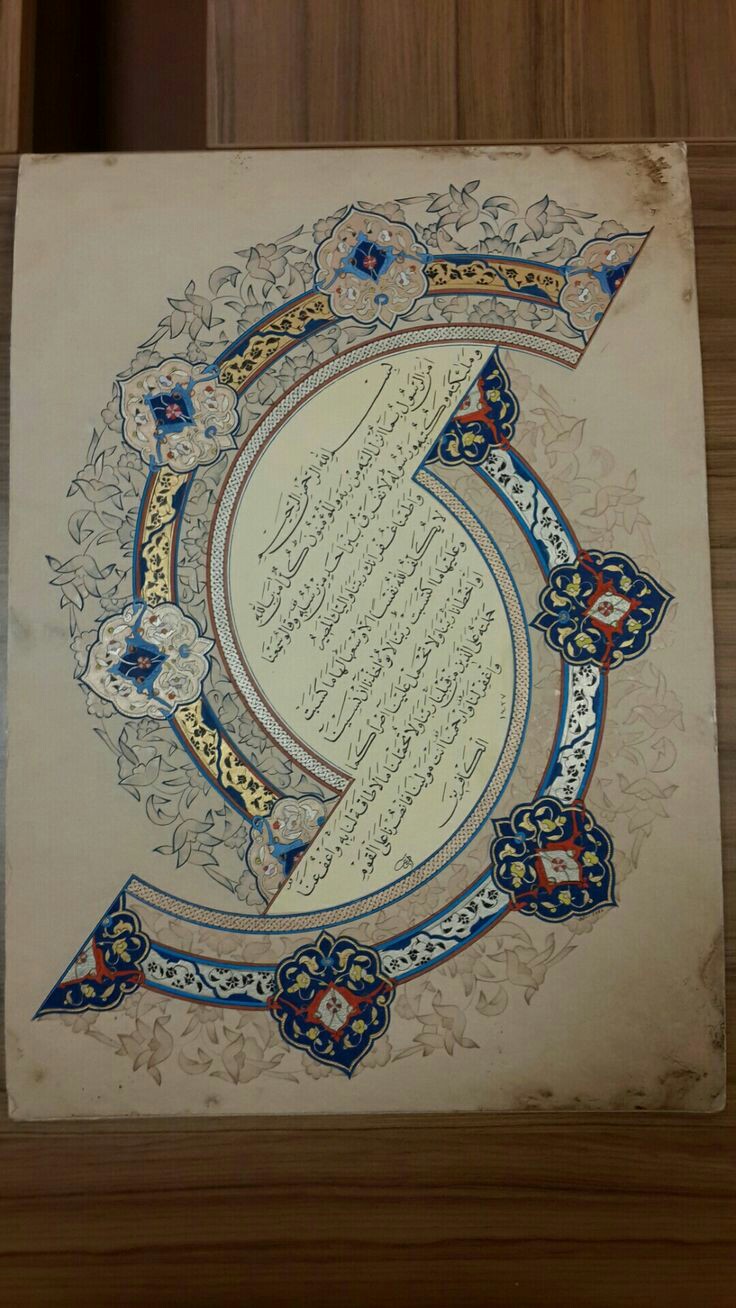 بِسْمِ اللهِ الرَّحْمٰنِ الرَّحِيمِ
اٰمَنَ الرَّسُولُ بِمَا اُنْزِلَ اِلَيْهِ مِنْ رَبِّهِ وَالْمُؤْمِنُونَ كُلٌّ اٰمَنَ بِاللهِ
وَمَلٰئِكَتِهِ وَكُتُبِهِ وَرُسُلِهِ لَا نُفَرِّقُ بَيْنَ اَحَدٍ مِنْ رُسُلِهِ وَقَالُوا سَمِعْنَا
وَاَطَعْنَا غُفْرَانَكَ رَبَّنَا وَاِلَيْكَ الْمَصِيرُ
لَا يُكَلِّفُ اللهُ نَفْسًا اِلَّا وُسْعَهَا لَهَا مَا كَسَبَتْ
وَعَلَيْهَا مَا اكْتَسَبَتْ رَبَّنَا لَا تُؤَاخِذْنَا اِنْ نَسِينَا
اَوْ اَخْطَاْنَا رَبَّنَا وَلَا تَحْمِلْ عَلَيْنَا اِصْرًا كَمَا
حَمَلْتَهُ عَلَى الَّذِينَ مِنْ قَبْلِنَا رَبَّنَا وَلَا تُحَمِّلْنَا مَا لَا طَاقَةَ لَنَا بِهِ وَاعْفُ عَنَّا
وَاغْفِرْ لَنَا وَارْحَمْنَا اَنْتَ مَوْلٰينَا فَانْصُرْنَا عَلَى الْقَوْمِ
الْكَافِرِينَ